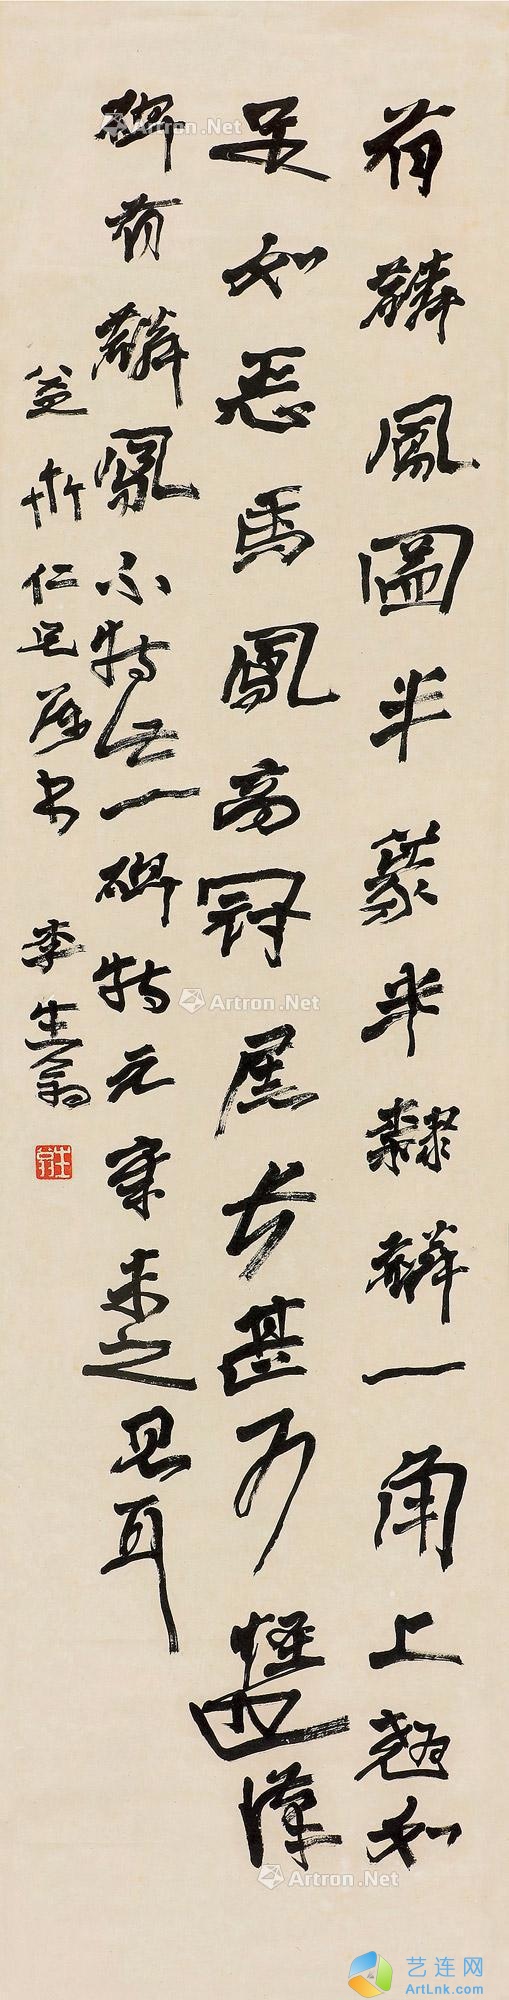 有麟鳳圖半篆半隸麟一角上翹如
足如惡馬鳳高冠尾長甚可怪也漢
碑有麟鳳不特此一碑特元章未之見耳
益斯仁兄屬書 李生翁
生翁
Artron.Net
Artron.Net
Artron.Net
艺连网
ArtLnk.com